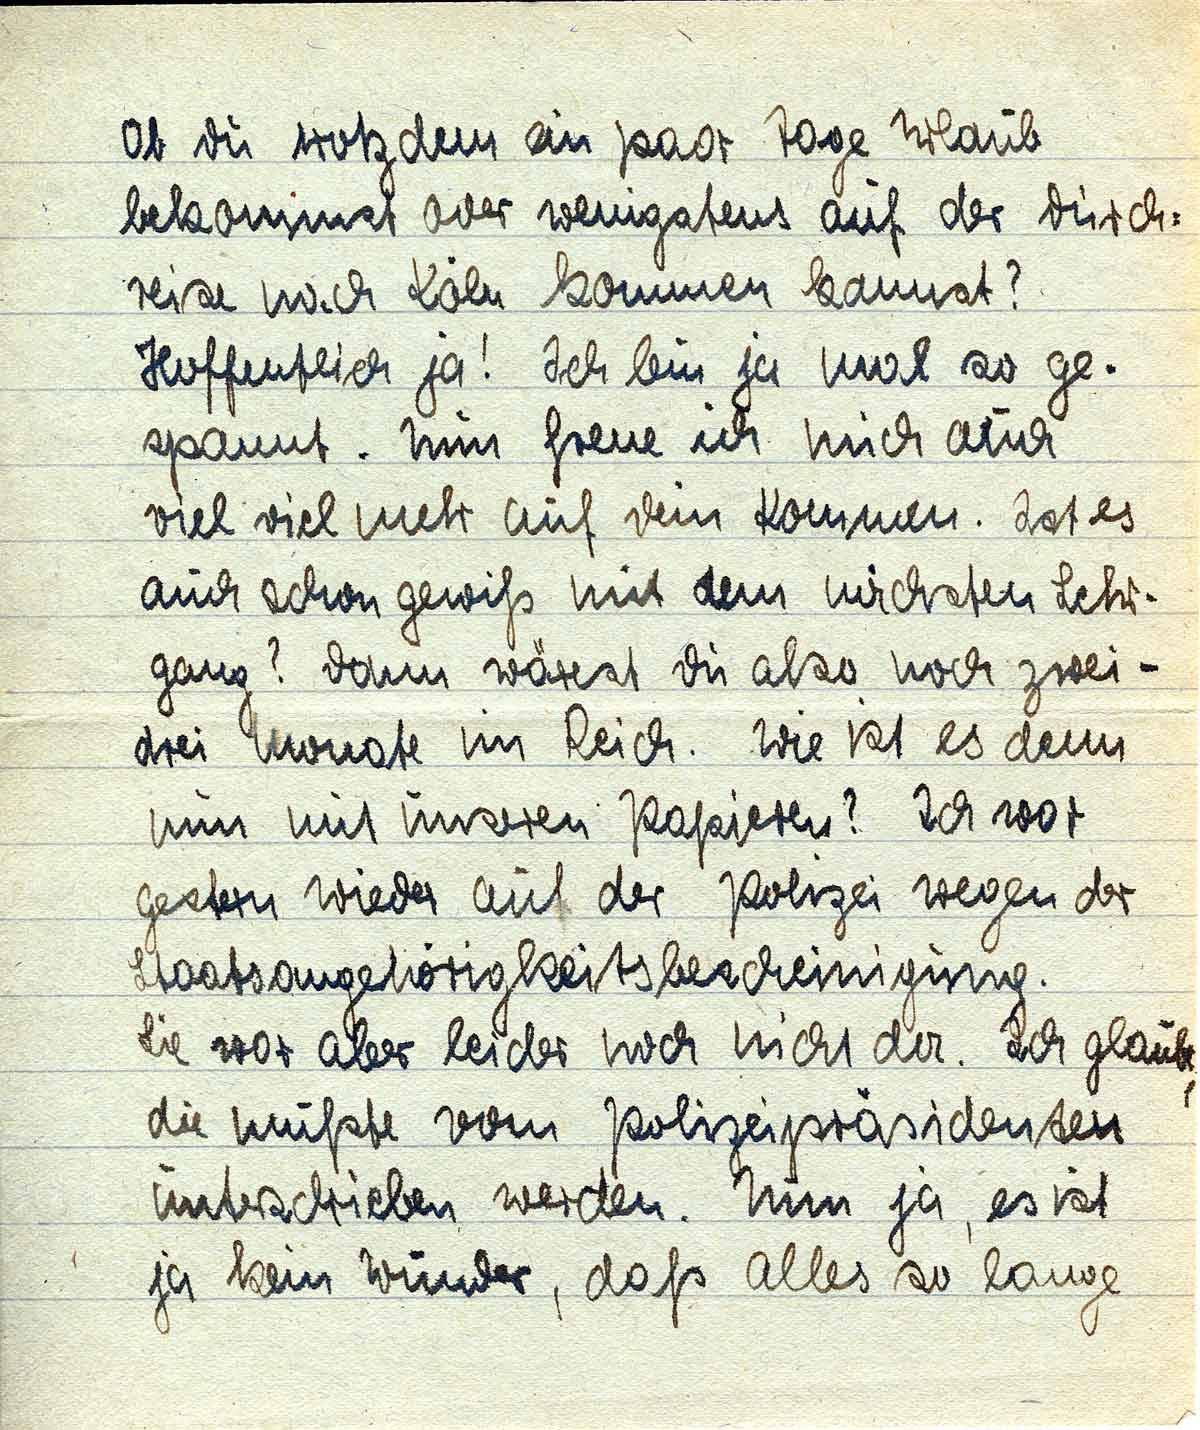 Ob du trotzdem ein paar Tage Urlaub
bekommst oder wenigstens auf der Durch-
reise nach Köln kommen kannst?
Hoffentlich ja! Ich bin ja mal so ge-
spannt. Nun freue ich mich auch
viel viel mehr auf dein Kommen. Ist es
auch schon gewiß mit dem nächsten Lehr-
gang? Dann wärest du also noch zwei-
drei Monate im Reich. Wie ist es denn
nun mit unseren Papieren? Ich war
gestern wieder auf der Polizei wegen der
Staatsangehörigkeitsbescheinigung.
Sie war aber leider noch nicht da. Ich glaube,
die müßte vom Polizeipräsidenten
unterschrieben werden. Nun ja, es ist
ja kein Wunder, daß alles so lange